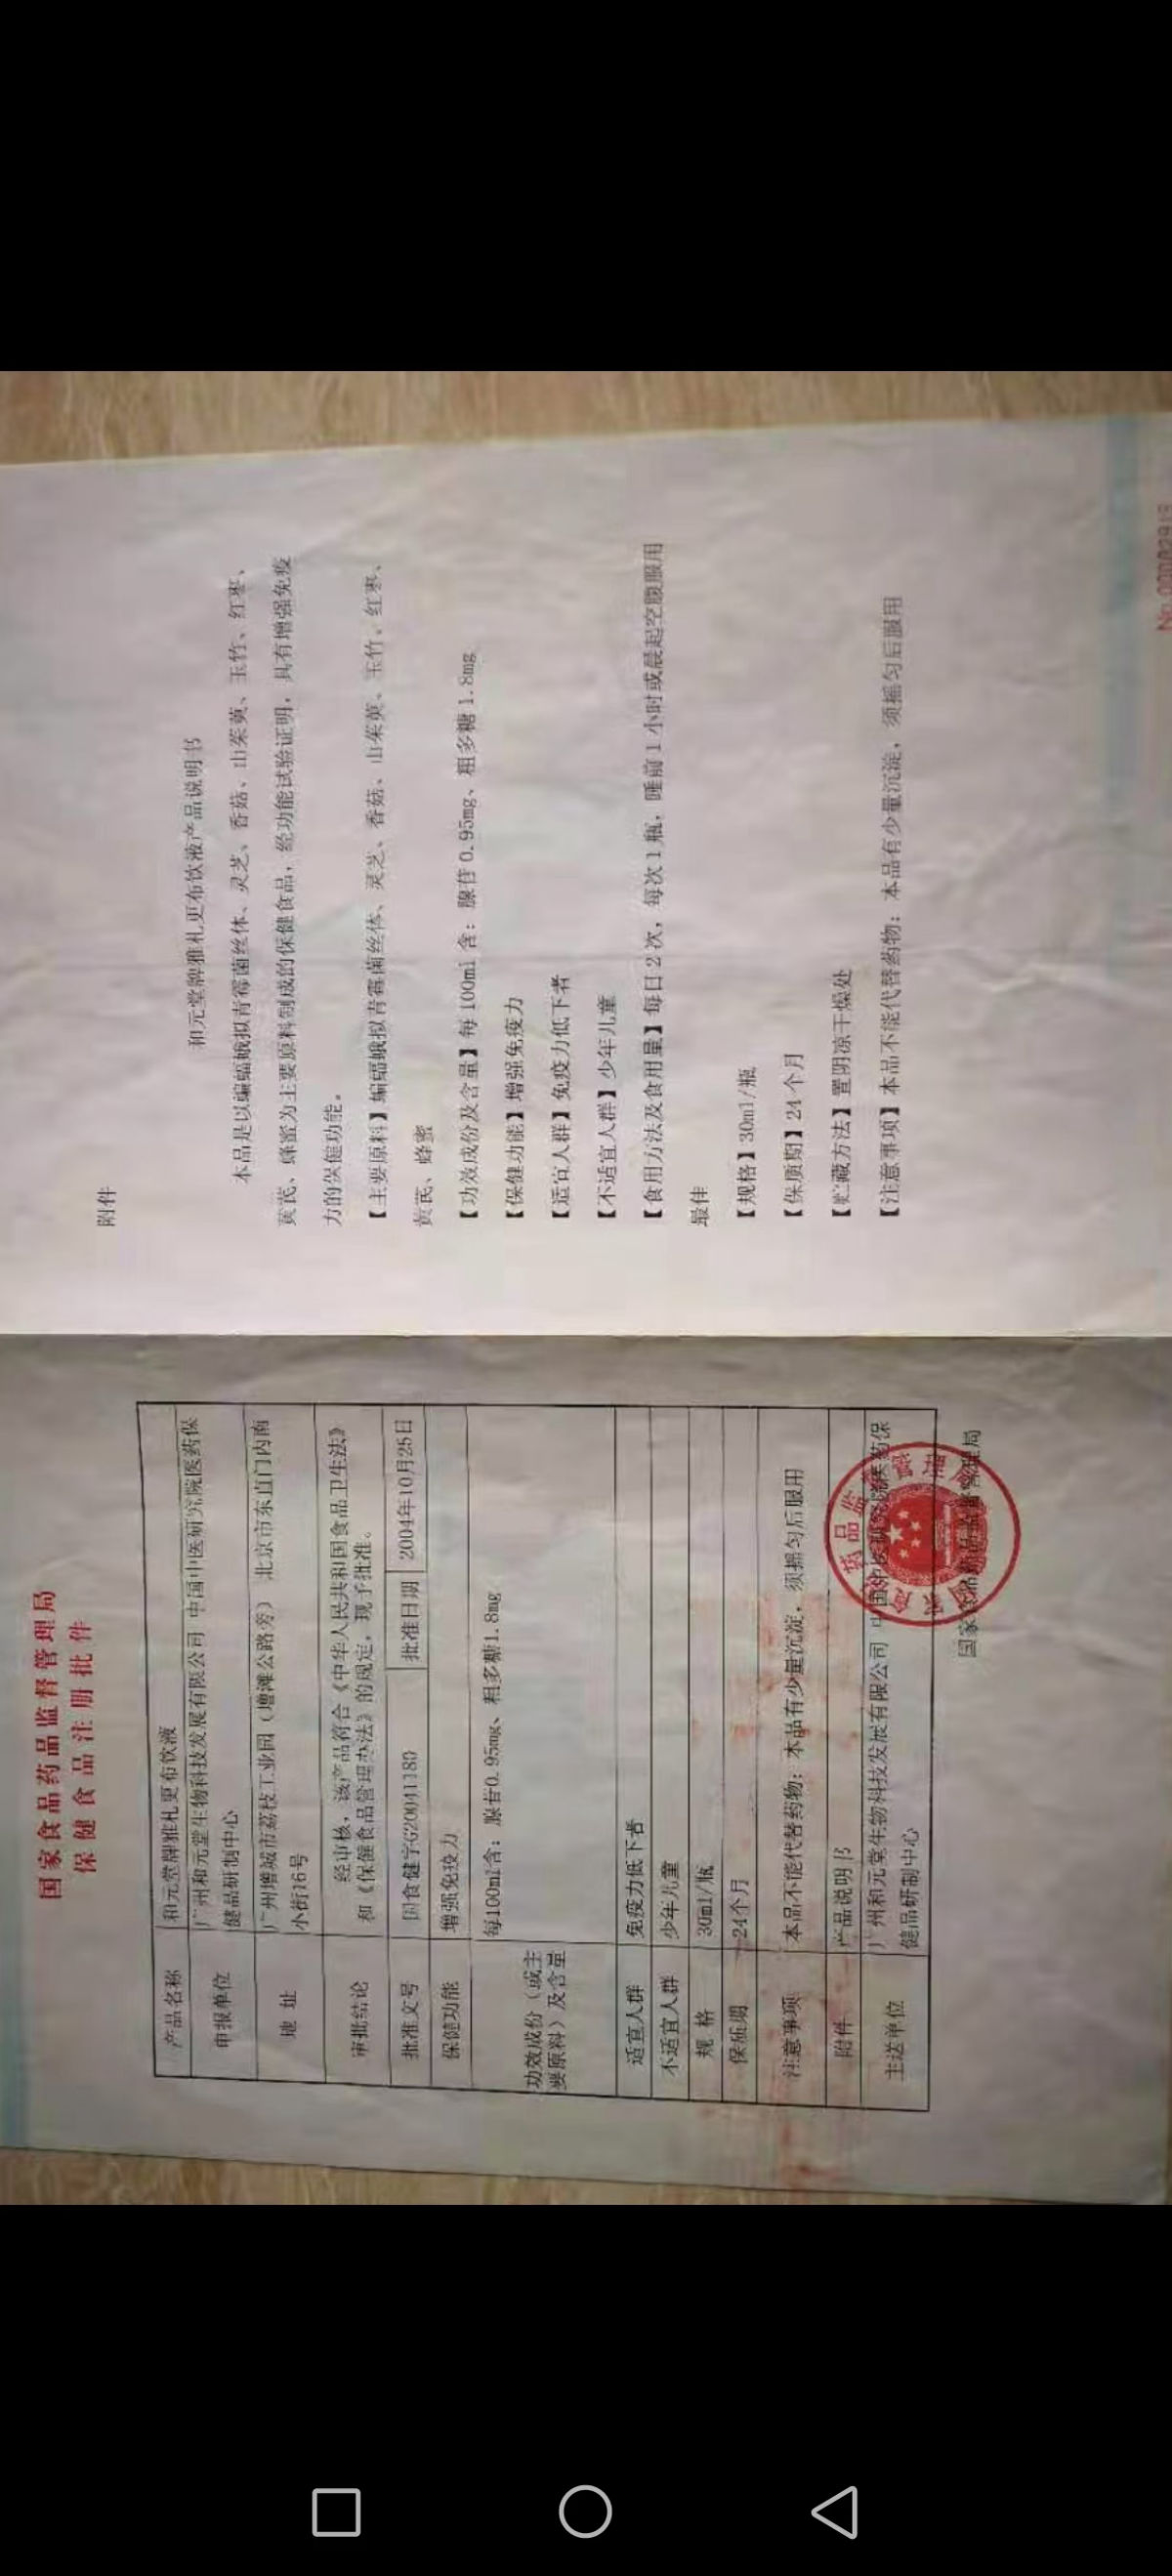 国家食品药品监督管理局
保健食品注册批件
产品名称 和元堂牌雅札更布饮液
申报单位 广州和元堂生物科技发展有限公司 中国中医研究院医药保
健品研制中心
地址 广州增城市荔枝工业园（增滩公路旁） 北京市东直门内南
小街16号
审批结论 经审核，该产品符合《中华人民共和国食品卫生法》
和《保健食品管理办法》的规定，现予批准。
批准文号 国食健字G20041180 批准日期 2004年10月25日
保健功能 增强免疫力
功效成份（或主
要原料）及含量 每100ml含：腺苷0.95mg、粗多糖1.8mg
适宜人群 免疫力低下者
不适宜人群 少年儿童
规格 30ml/瓶
保质期 24个月
注意事项 本品不能代替药物；本品有少量沉淀，须摇匀后服用
附件 产品说明书
主送单位 广州和元堂生物科技发展有限公司 中国中医研究院医药保
健品研制中心
国家食品药品监督管理局
附件
和元堂牌雅札更布饮液产品说明书
本品是以蝙蝠蛾拟青霉菌丝体、灵芝、香菇、山茱萸、玉竹、红枣、
黄芪、蜂蜜为主要原料制成的保健食品，经功能试验证明，具有增强免疫
力的保健功能。
【主要原料】蝙蝠蛾拟青霉菌丝体、灵芝、香菇、山茱萸、玉竹、红枣、
黄芪、蜂蜜
【功效成份及含量】每100ml含：腺苷0.95mg、粗多糖1.8mg
【保健功能】增强免疫力
【适宜人群】免疫力低下者
【不适宜人群】少年儿童
【食用方法及食用量】每日2次，每次1瓶，睡前1小时或晨起空腹服用
最佳
【规格】30ml/瓶
【保质期】24个月
【贮藏方法】置阴凉干燥处
【注意事项】本品不能代替药物；本品有少量沉淀，须摇匀后服用